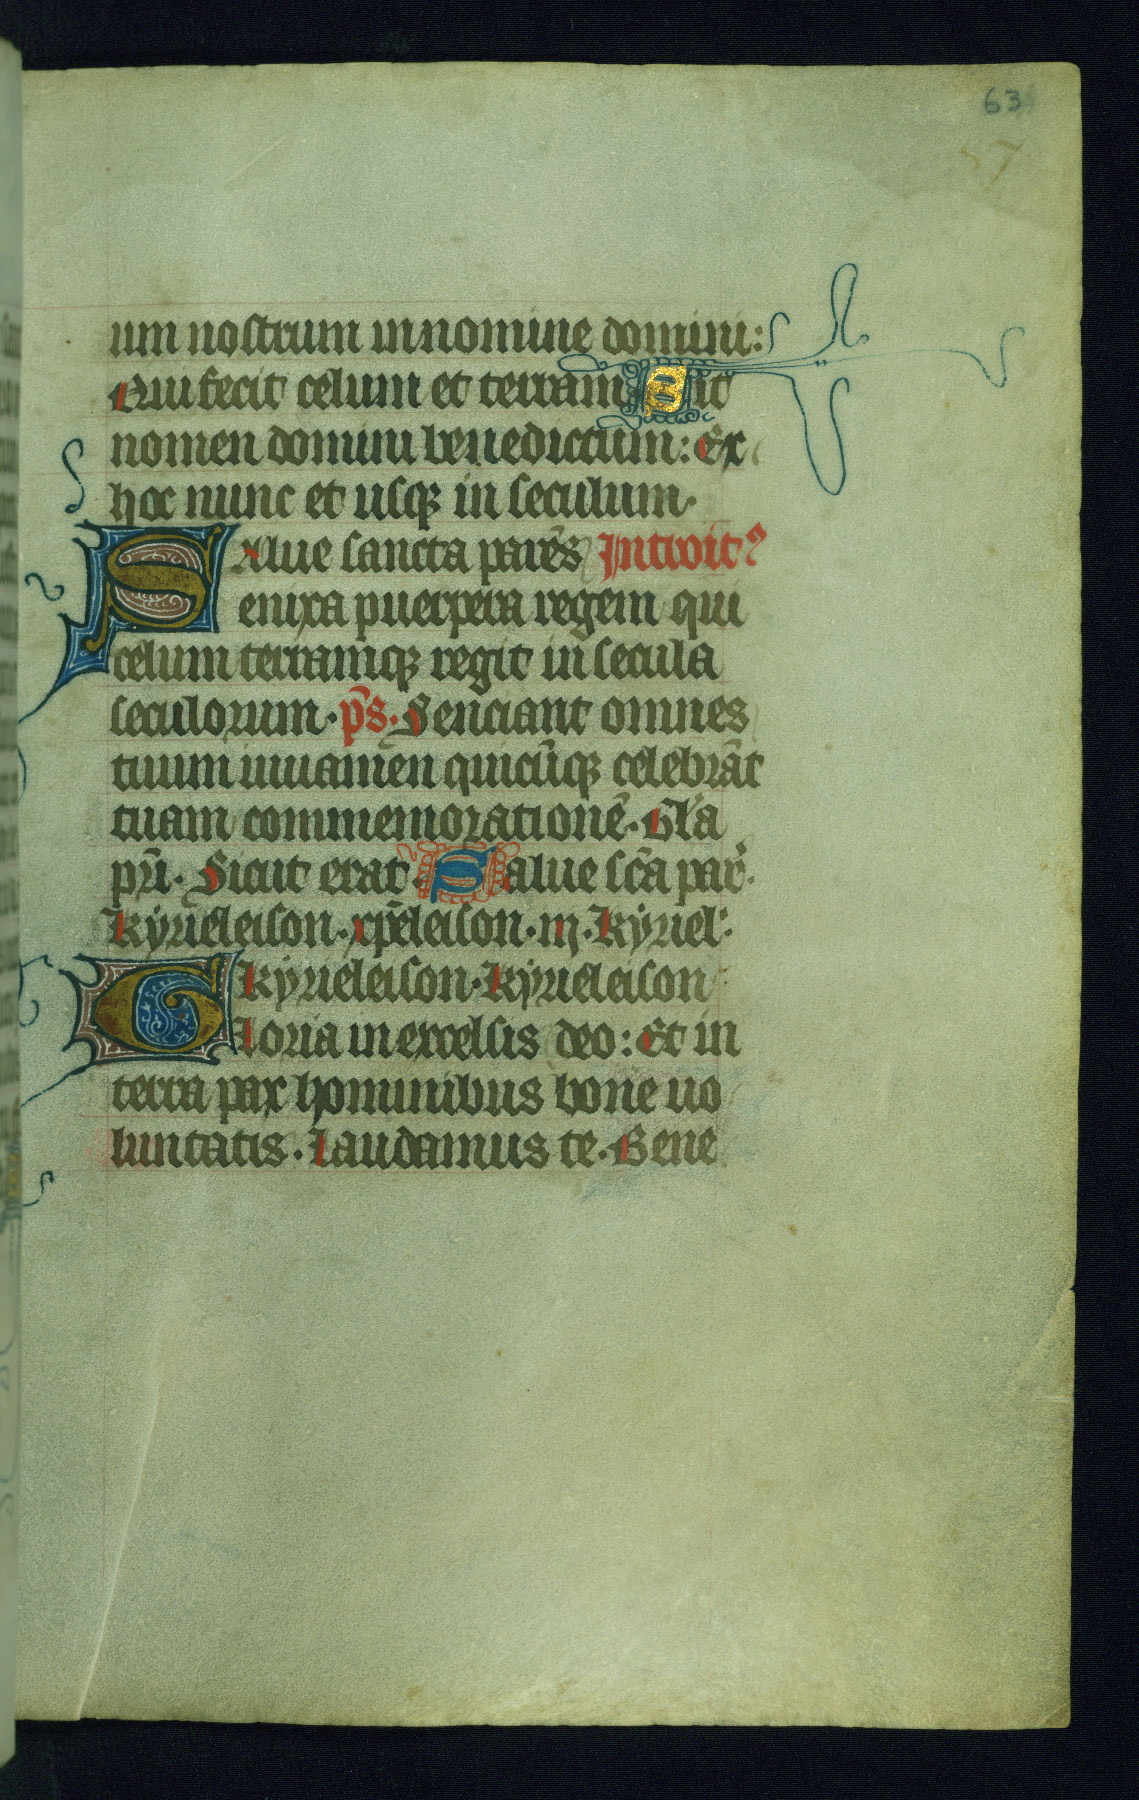 63
57
um nostrum in nomine domini:
Qui fecit celum et terram Sit
nomen domini benedictum: Ex
hoc nunc et usq̃ in seculum.
Salue sancta parēs Introit9
enixa puerpera regem qui
celum terramq̃ regit in secula
seculorum. p̄s. Senciant omnes
tuum iuuamen quicūq̃ celebrāt
tuam commemorationē. Gl'a
pr̄i. Sicut erat. Salue sc̄a par̄.
kyrieleison. xp̄eleison. iij. kyriel':
kyrieleison. kyrieleison
Gloria in excelsis deo: Et in
terra pax hominibus bone uo
luntatis. Laudamus te. Bene